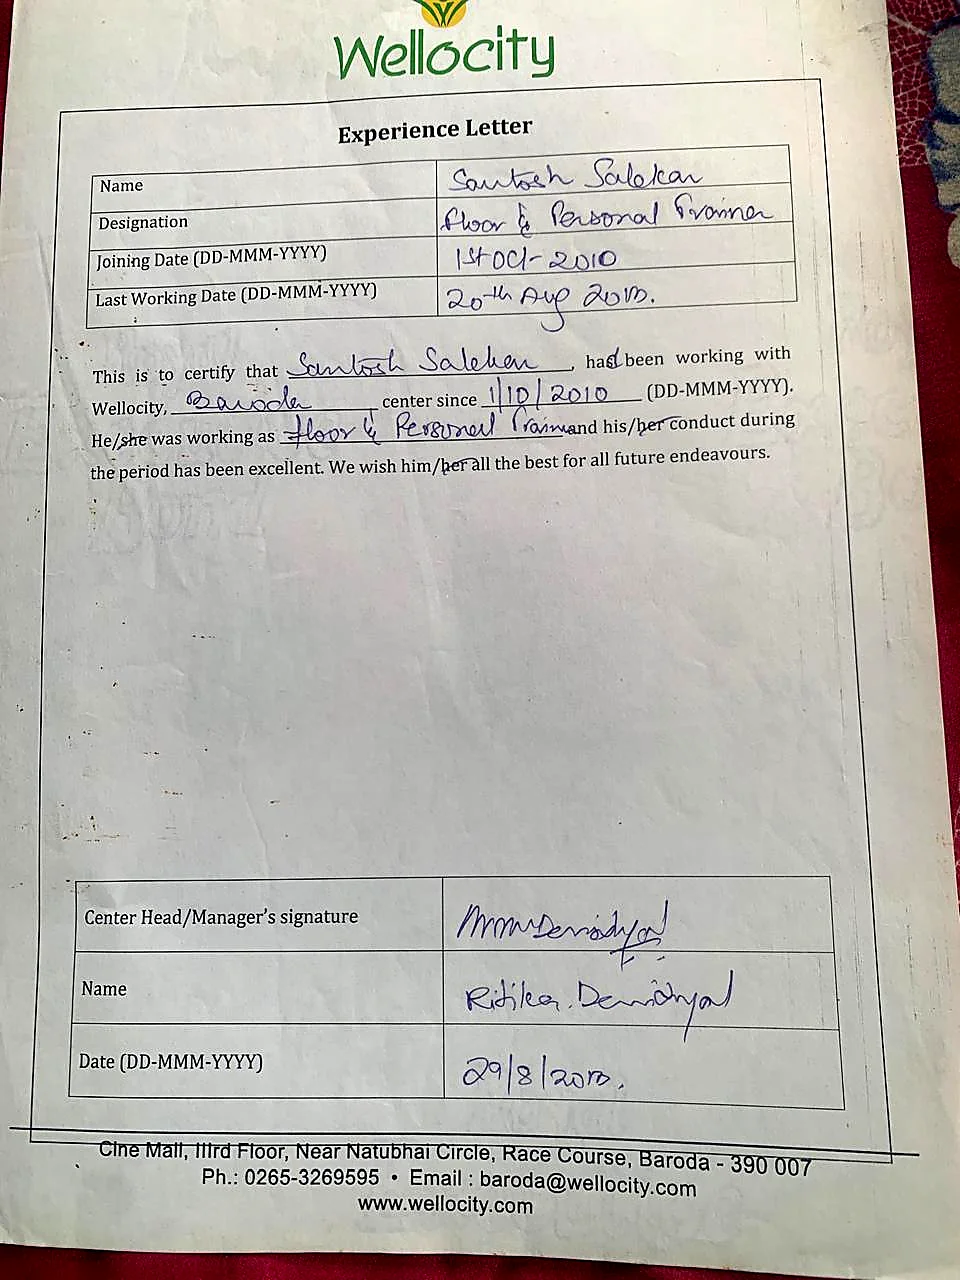 Wellocity
Experience Letter
Name Santosh Salekar
Designation Floor & Personal Trainer
Joining Date (DD-MMM-YYYY) 1st Oct- 2010
Last Working Date (DD-MMM-YYYY) 20th Aug 2013.
This is to certify that Santosh Salekar, had been working with
Wellocity, Baroda center since 1/10/2010 (DD-MMM-YYYY).
He/she was working as Floor & Personal Train and his/her conduct during
the period has been excellent. We wish him/her all the best for all future endeavours.
Center Head/Manager's signature
Name Ritika.
Date (DD-MMM-YYYY) 29/8/2013.
Cine Mall, IIIrd Floor, Near Natubhai Circle, Race Course, Baroda - 390 007
Ph.: 0265-3269595 • Email : baroda@wellocity.com
www.wellocity.com